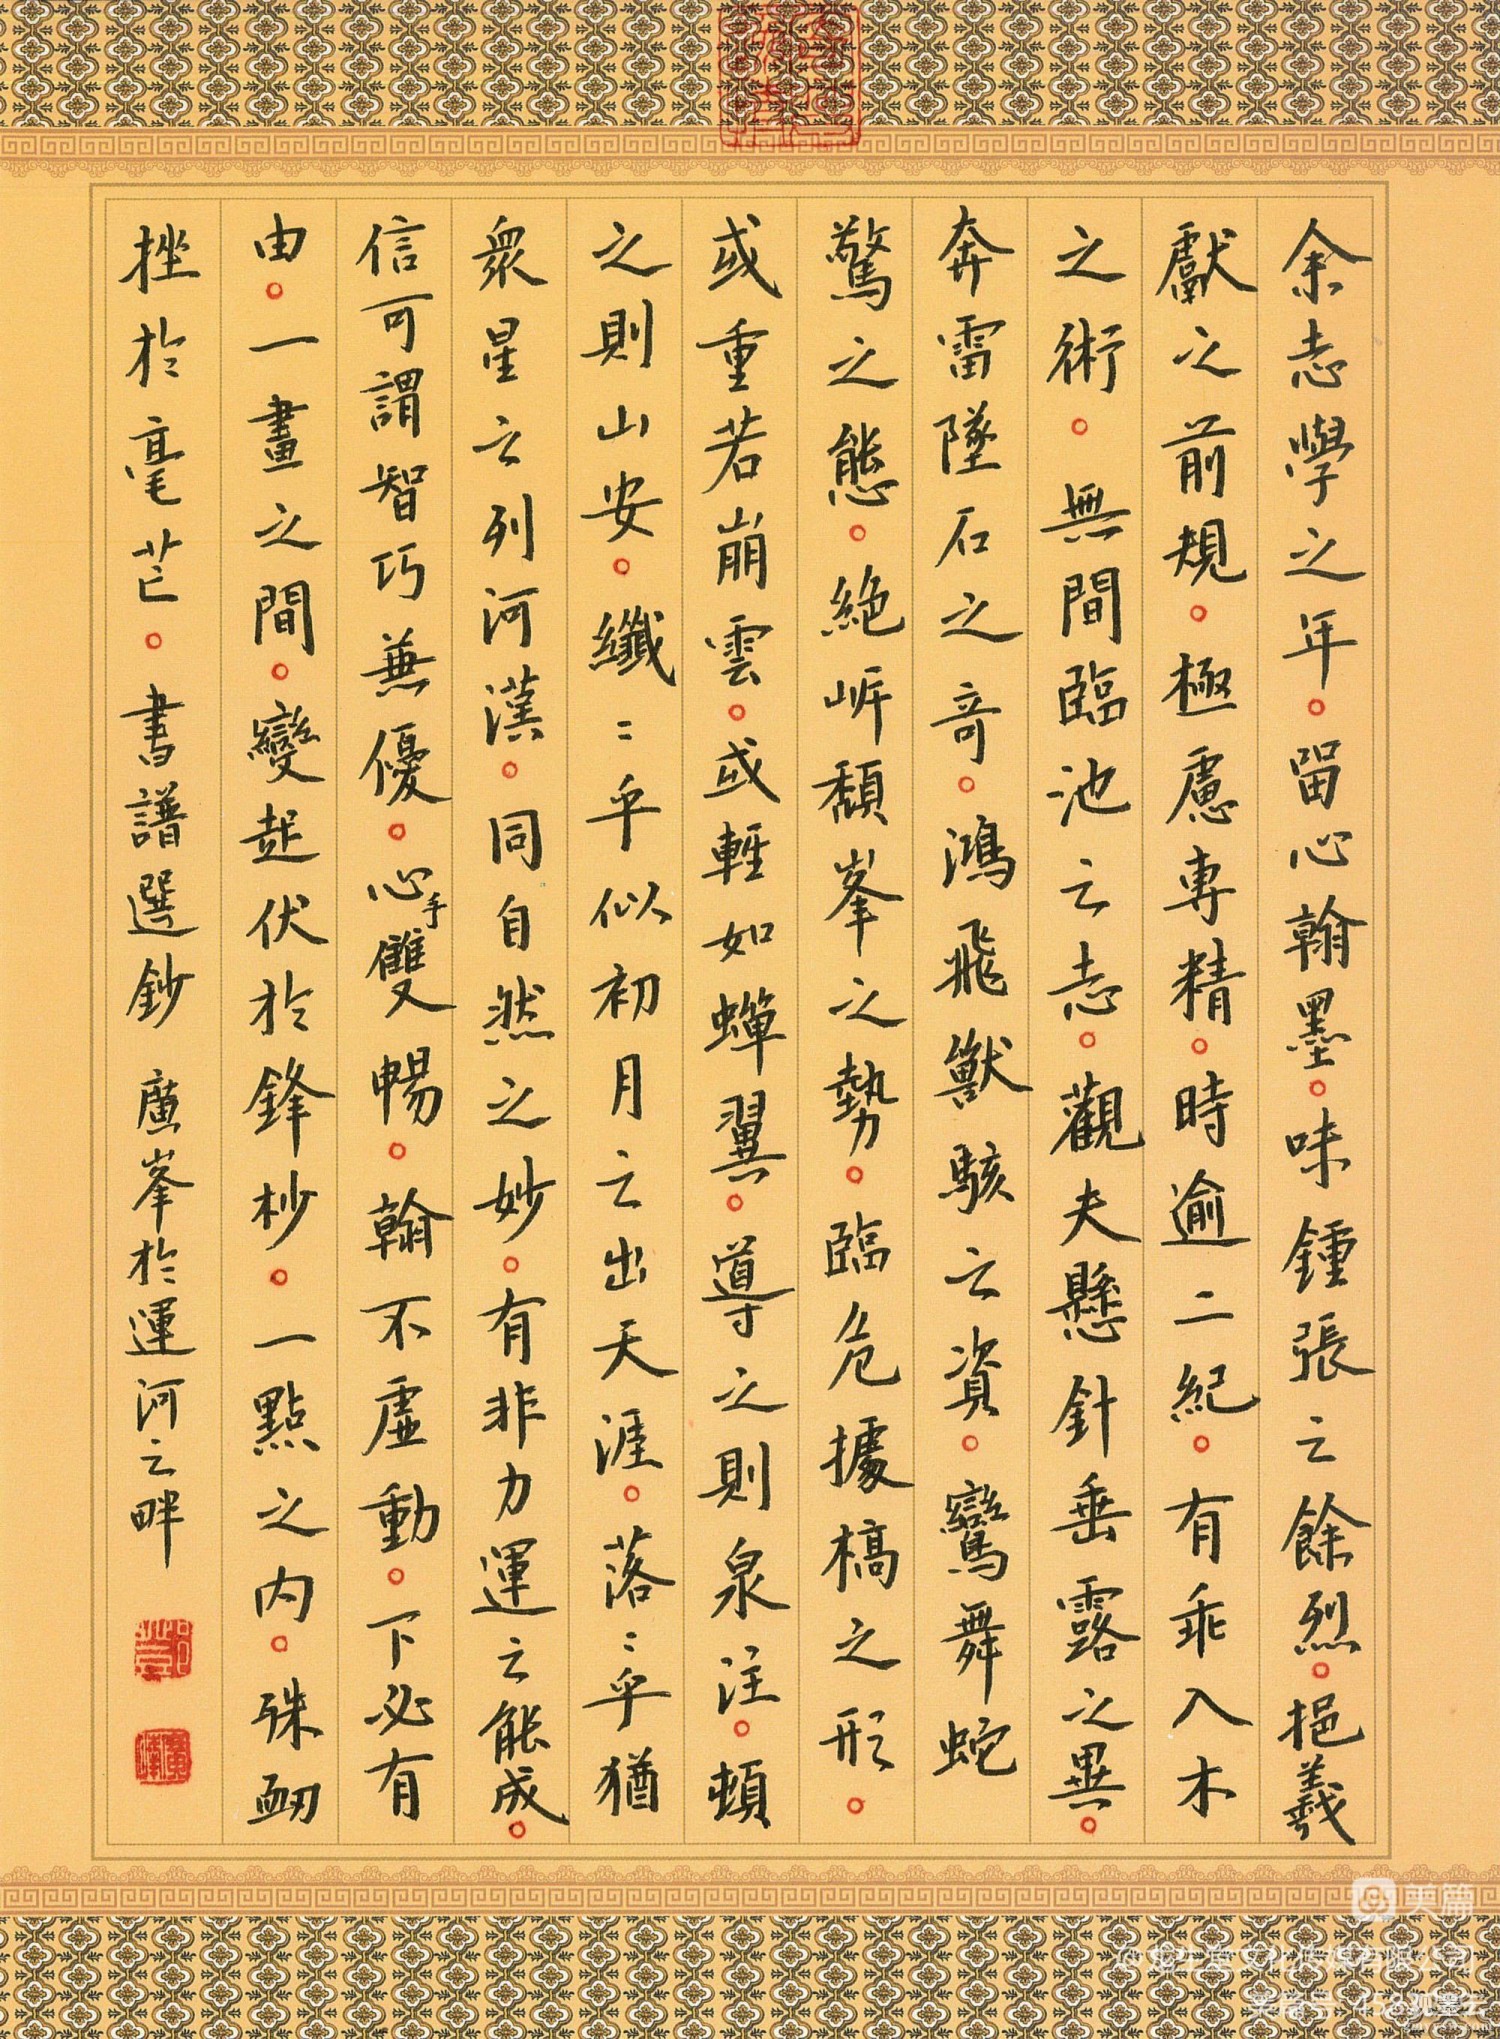 余志學之年。留心翰墨。味鍾張之餘烈。挹羲
獻之前規。極慮專精。時逾二紀。有乖入木
之術。無間臨池之志。觀夫懸針垂露之異。
奔雷墜石之奇。鴻飛獸駭之資。鸞舞蛇
驚之態。絶岸頹峯之勢。臨危據槁之形。
或重若崩雲。或輕如蟬翼。導之則泉注。頓
之則山安。纖〻乎似初月之出天涯。落〻乎猶
眾星之列河漢。同自然之妙。有非力運之能成。
信可謂智巧兼優。心手雙暢。翰不虛動。下必有
由。一畫之間。變起伏於鋒杪。一點之內。殊衄
挫於毫芒。書譜選鈔 廣峯於運河之畔
美篇